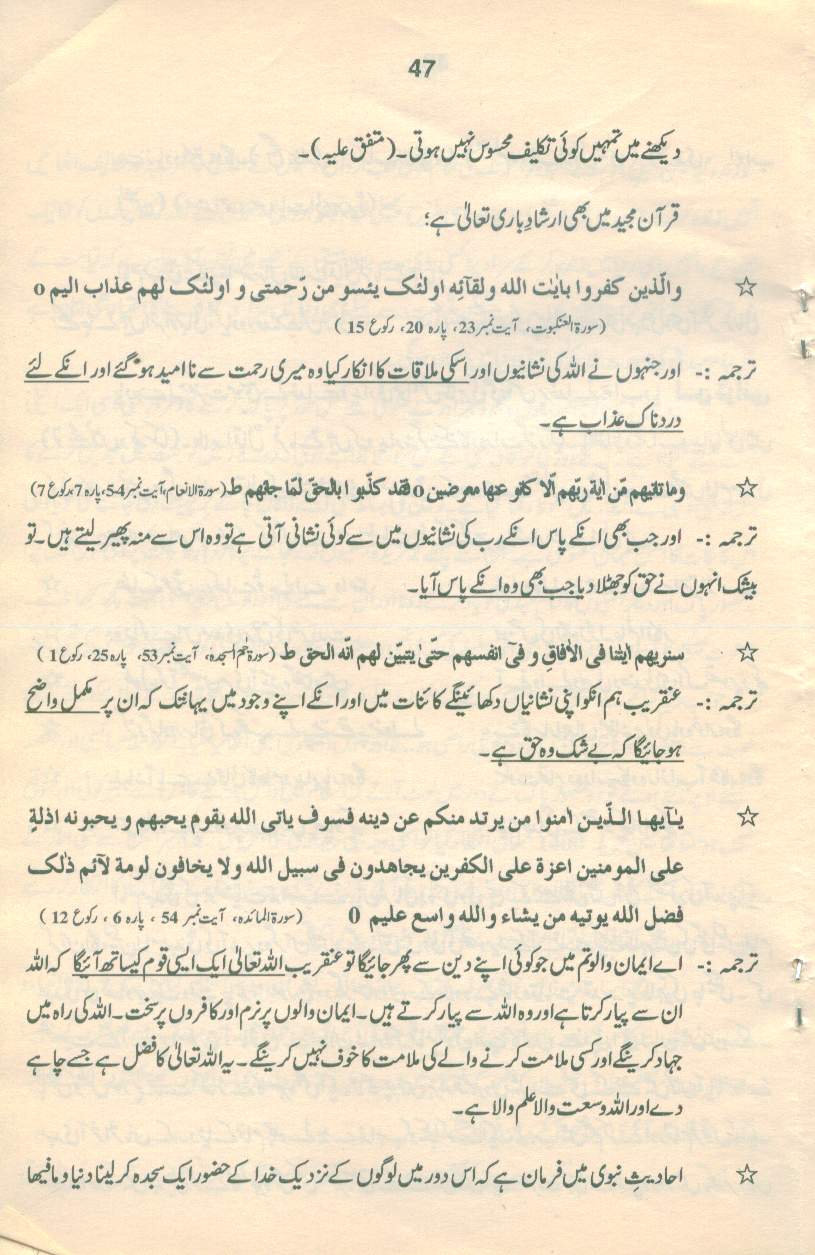 47
دیکھنے میں تمہیں کوئی تکلیف محسوس نہیں ہوتی۔ (متفق علیہ)۔
قرآن مجید میں بھی ارشادِ باری تعالیٰ ہے؛
☆ والّذین کفروا بایٰت الله ولقآئِه اولئٰک یئسو من رّحمتی و اولئٰک لهم عذاب الیم o
(سورۃ العنکبوت، آیت نمبر 23، پارہ 20، رکوع 15)
ترجمہ :- اور جنہوں نے اللہ کی نشانیوں اور اسکی ملاقات کا انکار کیا وہ میری رحمت سے نا امید ہو گئے اور انکے لئے
دردناک عذاب ہے۔
☆ وما تاتیهم مّن ایة ربّهم الّا کانو عنها معرضین o فقد کذّبو ا بالحقّ لمّا جائهم ط (سورۃ الانعام، آیت نمبر 54، پارہ 7، رکوع 7)
ترجمہ :- اور جب بھی انکے پاس انکے رب کی نشانیوں میں سے کوئی نشانی آتی ہے تو وہ اس سے منہ پھیر لیتے ہیں۔ تو
بیشک انہوں نے حق کو جھٹلا دیا جب بھی وہ انکے پاس آیا۔
☆ سنریهم ایٰتنا فی الاٰفاقِ و فیٓ انفسهم حتّیٰ یتبیّن لهم انّه الحق ط (سورۃ حٰم السجدہ، آیت نمبر 53، پارہ 25، رکوع 1)
ترجمہ :- عنقریب ہم انکو اپنی نشانیاں دکھائینگے کائنات میں اور انکے اپنے وجود میں یہانتک کہ ان پر مکمل واضح
ہو جائیگا کہ بے شک وہ حق ہے۔
☆ یٰآیها الّذین اٰمنوا من یرتد منکم عن دینه فسوف یاتی الله بقوم یحبهم و یحبونه اذلةٍ
علی المومنین اعزة علی الکفرین یجاهدون فی سبیل الله ولا یخافون لومة لآئم ذٰلک
فضل الله یوتیه من یشاء والله واسع علیم 0 (سورۃ المائدہ، آیت نمبر 54 ، پارہ 6 ، رکوع 12)
ترجمہ :- اے ایمان والو تم میں جو کوئی اپنے دین سے پھر جائیگا تو عنقریب اللہ تعالیٰ ایک ایسی قوم کیساتھ آئیگا کہ اللہ
ان سے پیار کرتا ہے اور وہ اللہ سے پیار کرتے ہیں۔ ایمان والوں پر نرم اور کافروں پر سخت۔ اللہ کی راہ میں
جہاد کرینگے اور کسی ملامت کرنے والے کی ملامت کا خوف نہیں کرینگے۔ یہ اللہ تعالیٰ کا فضل ہے جسے چاہے
دے اور اللہ وسعت والا علم والا ہے۔
☆ احادیثِ نبوی میں فرمان ہے کہ اس دور میں لوگوں کے نزدیک خدا کے حضور ایک سجدہ کر لینا دنیا و مافیھا